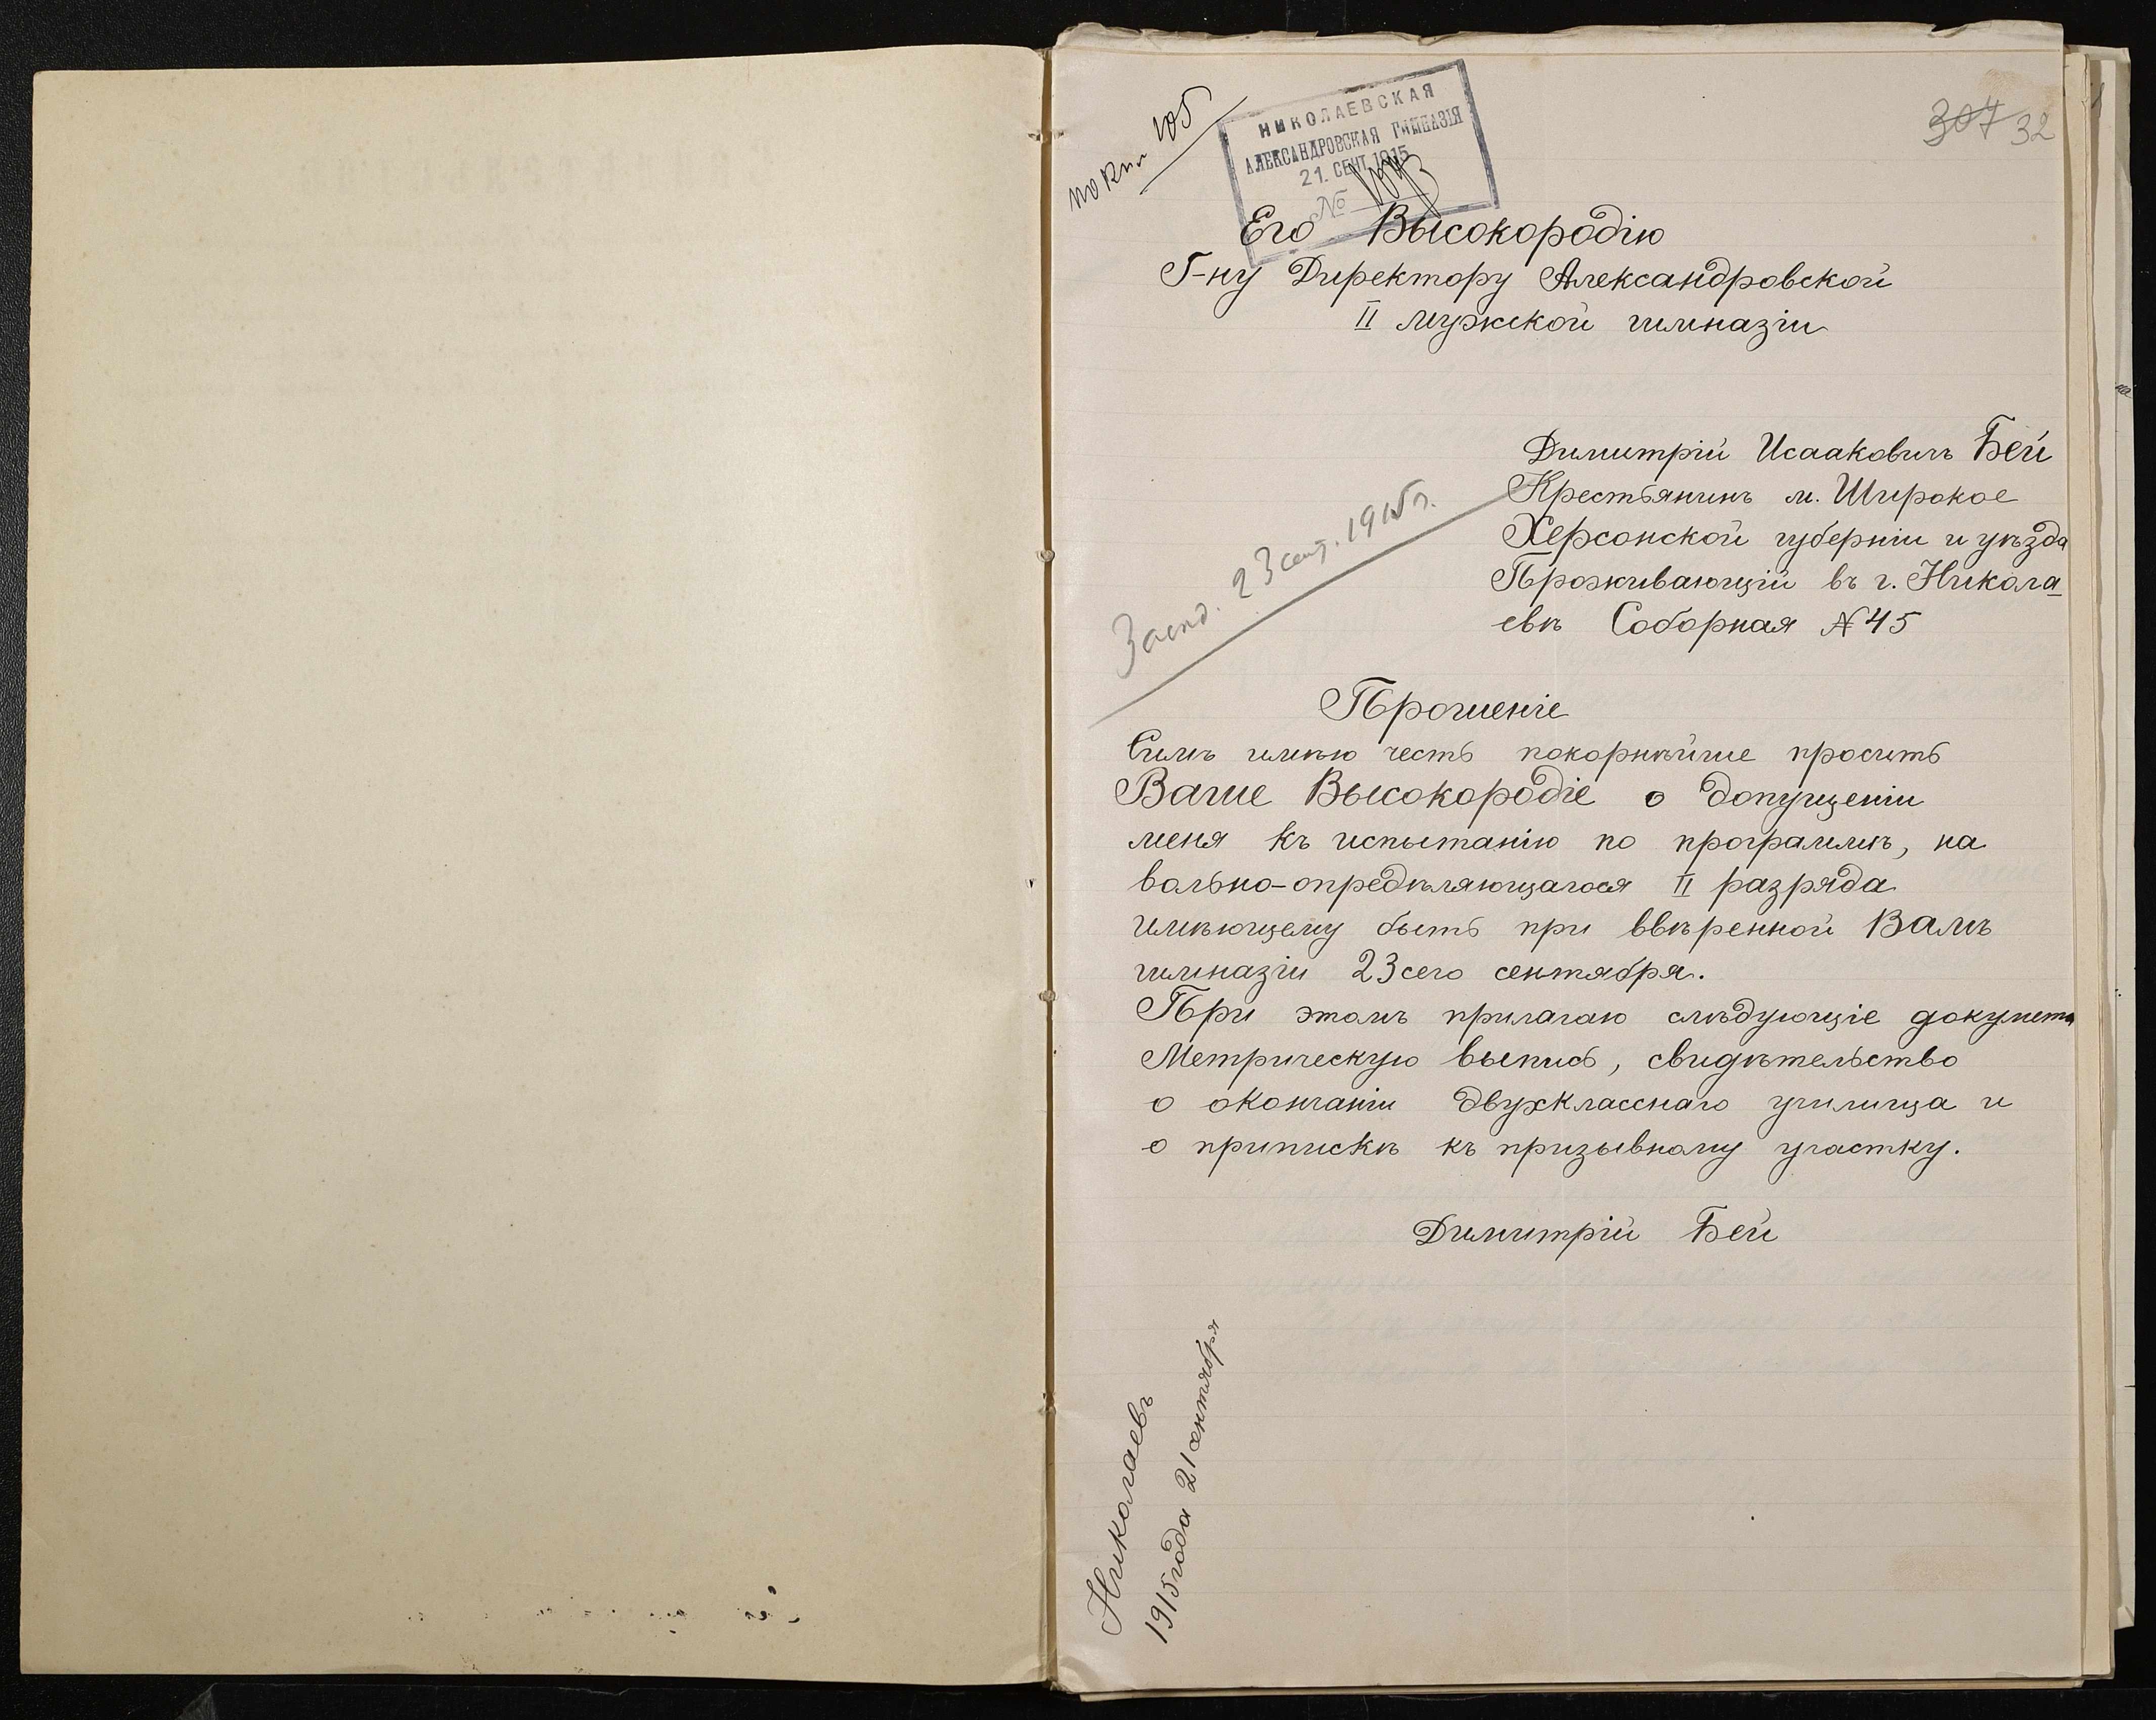 по кни 105
НИКОЛАЕВСКАЯ
АЛЕКСАНДРОВСКАЯ ГИМНАЗІЯ
21. СЕНТ. 1915
№
307 32
Его Высокородію
Г-ну Директору Александровской
II мужской гимназіи
Димитрій Исааковичъ Бей
Крестьянинъ м. Широкое
Херсонской губерніи и уѣзда
Проживающій въ г. Никола
евѣ Соборная №45
23 сент. 1915 г.
Прошеніе
Симъ имѣю честь покорнѣйше просить
Ваше Высокородіе о допущеніи
меня къ испытанію по программѣ, на
вольно-опредѣляющагося II разряда
имѣющему быть при ввѣренной Вамъ
гимназіи 23 сего сентября.
При этомъ прилагаю слѣдующіе документы
Метрическую выпись, свидѣтельство
о окончаніи двухкласснаго училища и
о припискѣ къ призывному участку.
Димитрій Бей
Николаевъ
1915 года 21 сентября